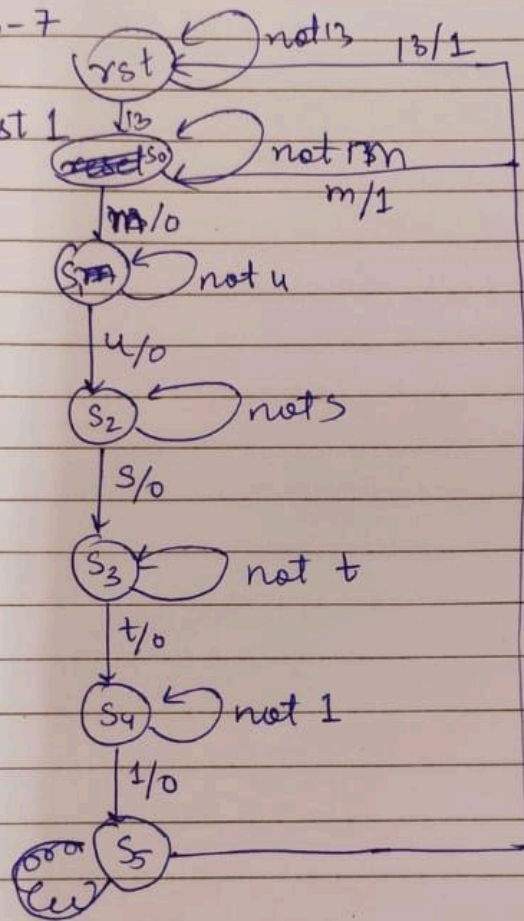 -7
rst
not 13
13/1
13
st 1
S0
not m
m/1
m/0
S1
not u
u/0
S2
not S
S/0
S3
not t
t/0
S4
not 1
1/0
S5